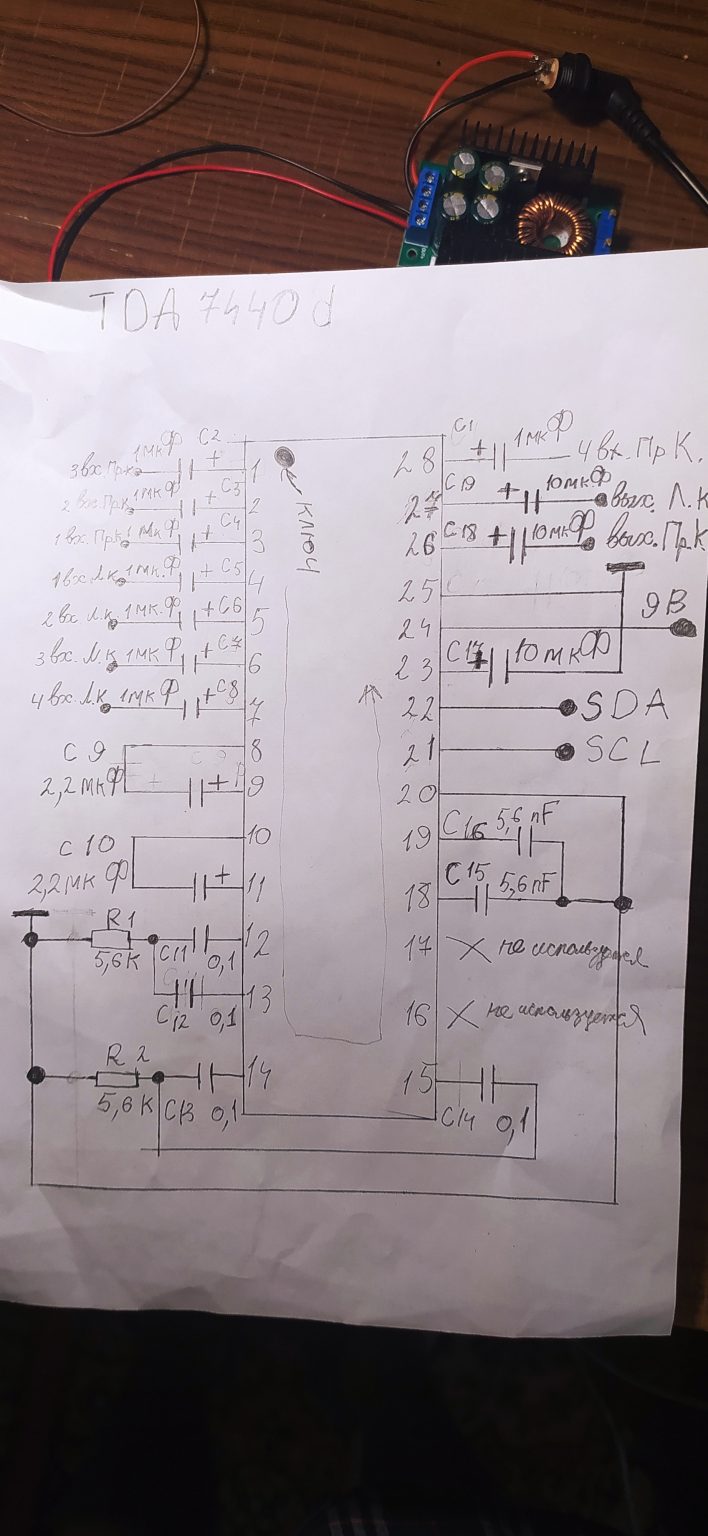 TDA 7440d
3 вх. Пр.К 1 мкФ C2 + 1
2 вх. Пр.К 1 мкФ + C3 2
1 вх. Пр.К 1 мкФ + C4 3
1 вх. Л.К 1 мкФ + C5 4
2 вх. Л.К 1 мкФ + C6 5
3 вх. Л.К 1 мкФ + C7 6
4 вх. Л.К 1 мкФ + C8 7
8
C9
2,2 мкФ + 9
10
C10
2,2 мкФ + 11
R1
5,6К C11 0,1 12
C12 0,1 13
R2
5,6К C13 0,1 14
ключ
28 C1 + 1 мкФ 4 вх. Пр К.
27 C19 + 10 мкФ вых. Л.К
26 C18 + 10 мкФ вых. Пр.К
25
24 9В
23 C17 + 10 мкФ
22 SDA
21 SCL
20
19 C16 5,6 nF
18 C15 5,6 nF
17 не используется
16 не используется
15 C14 0,1